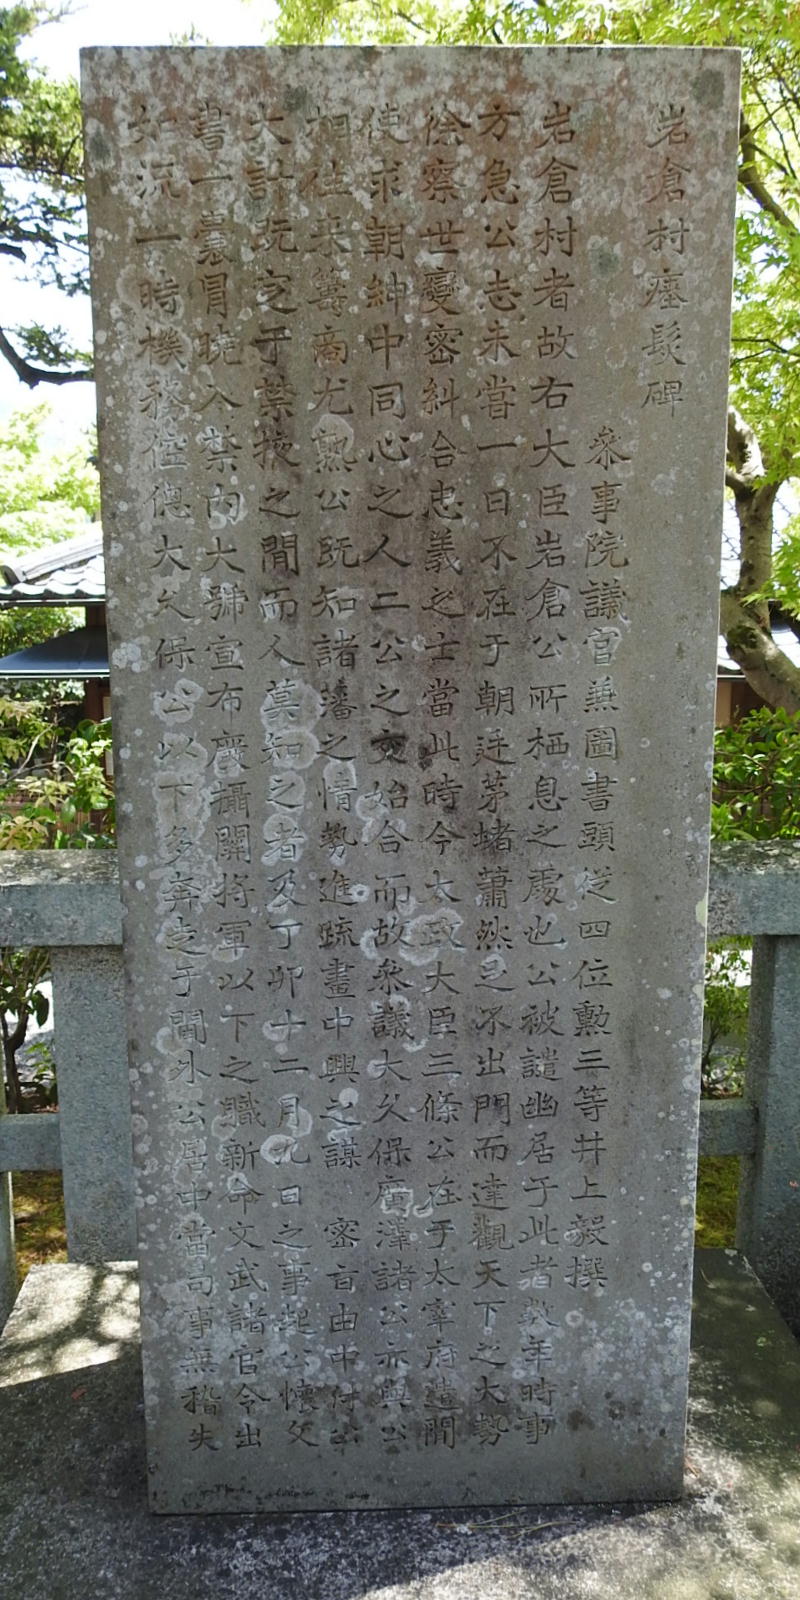 岩倉村瘞髮碑
參事院議官兼圖書頭從四位勲三等井上毅撰
岩倉村者故右大臣岩倉公所栖息之處也公被譴幽居于此者数年時事
方急公志未嘗一日不在于朝廷茅堵蕭然足不出門而達觀天下之大勢
徐察世變密糾合忠義之士當此時今太政大臣三條公在于太宰府遣間
使求朝紳中同心之人二公之交始合而故參議大久保廣澤諸公亦與公
相往来籌商尤熟公既知諸藩之情勢進疏畫中興之謀 密旨由中付公
大計既定于禁掖之間而人莫知之者及丁卯十二月九日之事起公懐文
書一嚢冒曉入禁内大號宣布廢攝關将軍以下之職新命文武諸官令出
如流一時機務倥偬大久保公以下多奔走于閫外公居中當局事無稽失